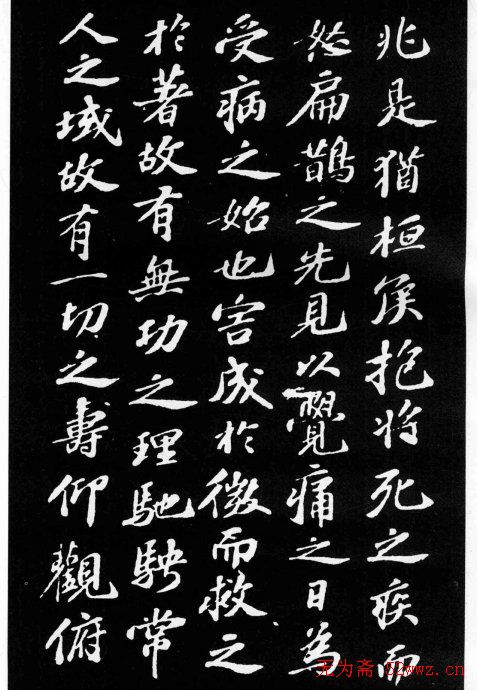 兆是猶桓侯抱將死之疾而
怒扁鵲之先見以覺痛之日為
受病之始也害成於微而救之
於著故有無功之理馳騁常
人之域故有一切之壽仰觀俯
无为斋 52wwz.cn